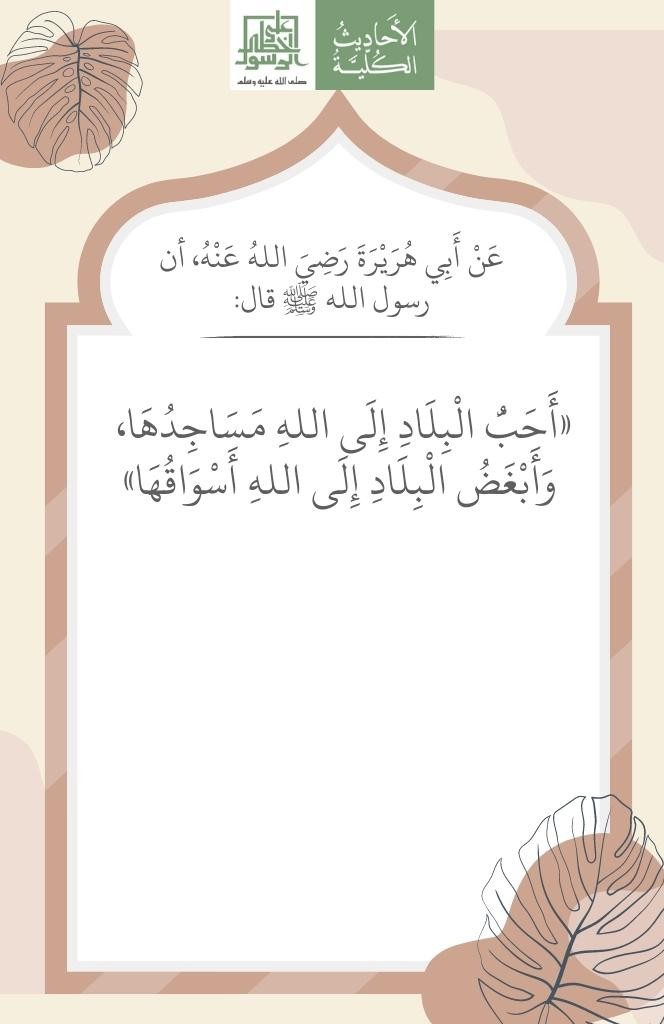 على
خطى
الرسول
صلى الله عليه وسلم
الأَحَادِيثُ
الكُلِّيَّةُ
عَنْ أَبِي هُرَيْرَةَ رَضِيَ اللهُ عَنْهُ، أن
رسول الله ﷺ قال:
«أَحَبُّ الْبِلَادِ إِلَى اللهِ مَسَاجِدُهَا،
وَأَبْغَضُ الْبِلَادِ إِلَى اللهِ أَسْوَاقُهَا»